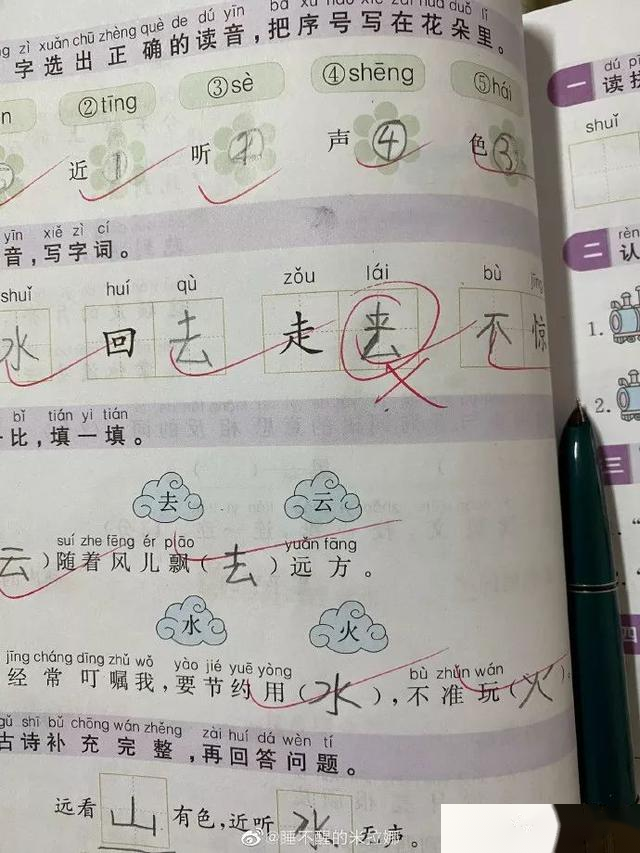 zì xuǎn chū zhèng què de dú yīn
字选出正确的读音，把序号写在花朵里。
②tīng ③sè ④shēng ⑤hái
近① 听② 声④ 色③
yīn xiě zì cí
音，写字词。
shuǐ huí qù zǒu lái bù
水 回去 走 不惊
bǐ tián yi tián
比，填一填。
去 云
suí zhe fēng ér piāo yuǎn fāng
云）随着风儿飘（去）远方。
水 火
jīng cháng dīng zhǔ wǒ yào jié yuē yòng bù zhǔn wán
经常叮嘱我，要节约用（水），不准玩（火）。
gǔ shī bǔ chōng wán zhěng zài huí dá wèn tí
古诗补充完整，再回答问题。
远看山有色，近听水无声。
@睡不醒的米拉娜
一 读拼
shuǐ
二 认
1.
2.
三
四